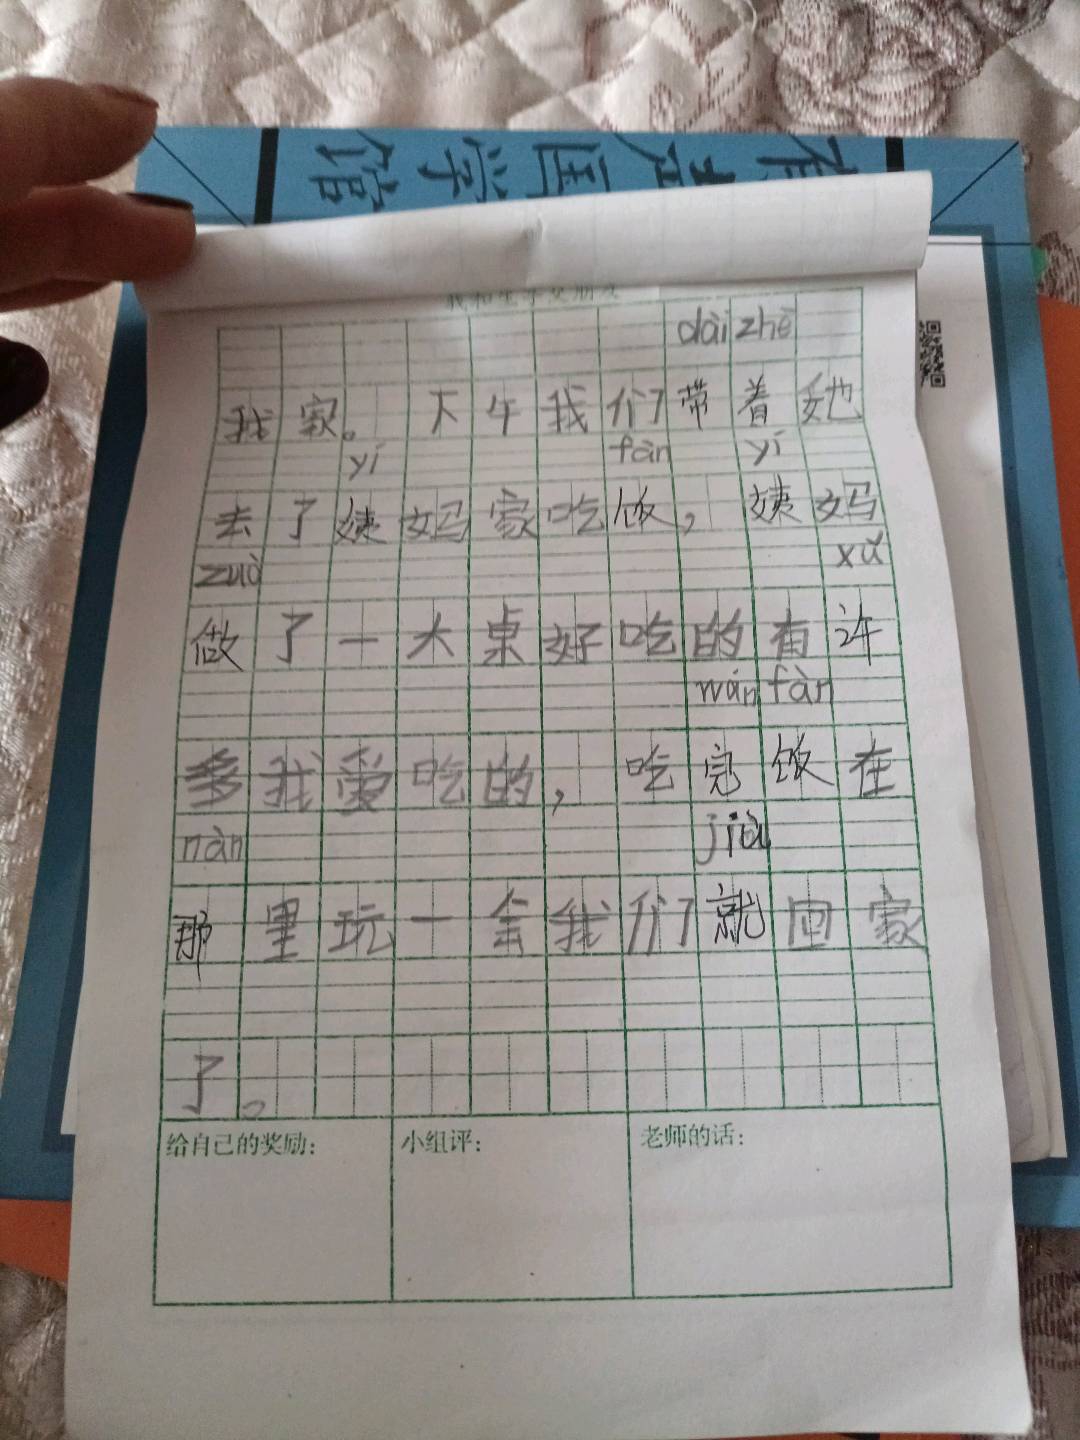 我和生字交朋友
dài zhē
我家。下午我们带着她
yí fàn yí
去了姨妈家吃饭，姨妈
zuò xǔ
做了一大桌好吃的有许
wán fàn
多我爱吃的，吃完饭在
nàn jiù
那里玩一会我们就回家
了。
给自己的奖励： 小组评： 老师的话：